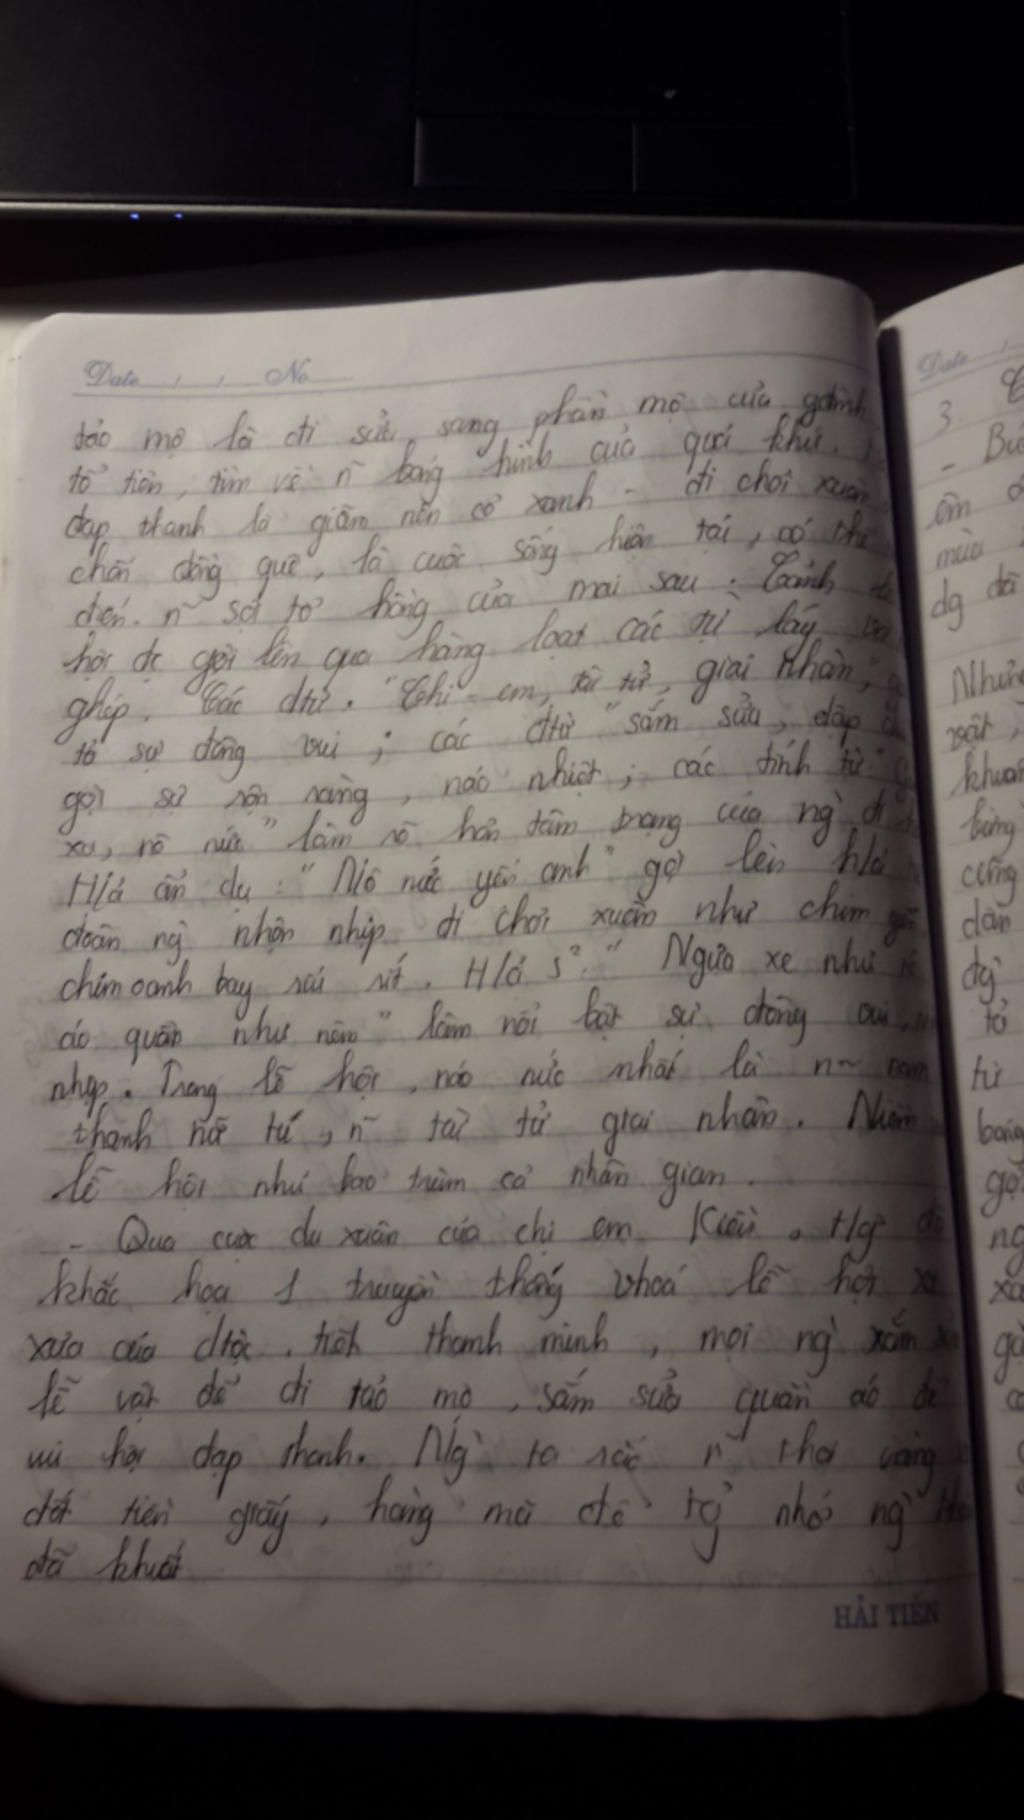 Date / / No
tảo mộ là đi sửa sang phần mộ của gđình
tổ tiên, tìm về n~ bóng hình của quá khứ.
đạp thanh là giẫm nên cỏ xanh - đi chơi xuân
chốn đồng quê, là cuộc sống hiện tại, có thể
đến. n~ sợi tơ hồng của mai sau. Cảnh
hội đc gợi lên qua hàng loạt các từ láy
ghép. Các dtừ. "Chị em, tài tử, giai nhân",
tả sự đông vui; các đtừ "sắm sửa, dập
gợi sự rộn ràng, náo nhiệt; các tính từ "
xa, nô nức" làm rõ hơn tâm trạng của ng` đi
H/á ẩn dụ: "Nô nức yến anh" gợi lên h/á
đoàn ng` nhộn nhịp đi chơi xuân như chim
chim oanh bay ríu rít. H/á s²: "Ngựa xe như
áo quần như nêm" làm nổi bật sự đông vui,
nhịp. Trong lễ hội, náo nức nhất là n~ nam
thanh nữ tú, n~ tài tử giai nhân. Niềm
lễ hội như bao trùm cả nhân gian.
- Qua cuộc du xuân của chị em Kiều, tgỉ
khắc họa 1 truyền thống vhoá lễ hội
xưa của dtộc. tiết thanh minh, mọi ng` sắm
lễ vật để đi tảo mộ, sắm sửa quần áo để
vui hội đạp thanh. Ng` ta rắc n~ thoi vàng
đốt tiền giấy, hàng mã để tg? nhớ ng`
đã khuất
HẢI TIẾN
Date /
3.
- Bứ
êm
mùa
dg đã
Những
vật,
khoan
bừng
cũng
dần
dg`
tả
từ
bâng
gợi
ng
xa